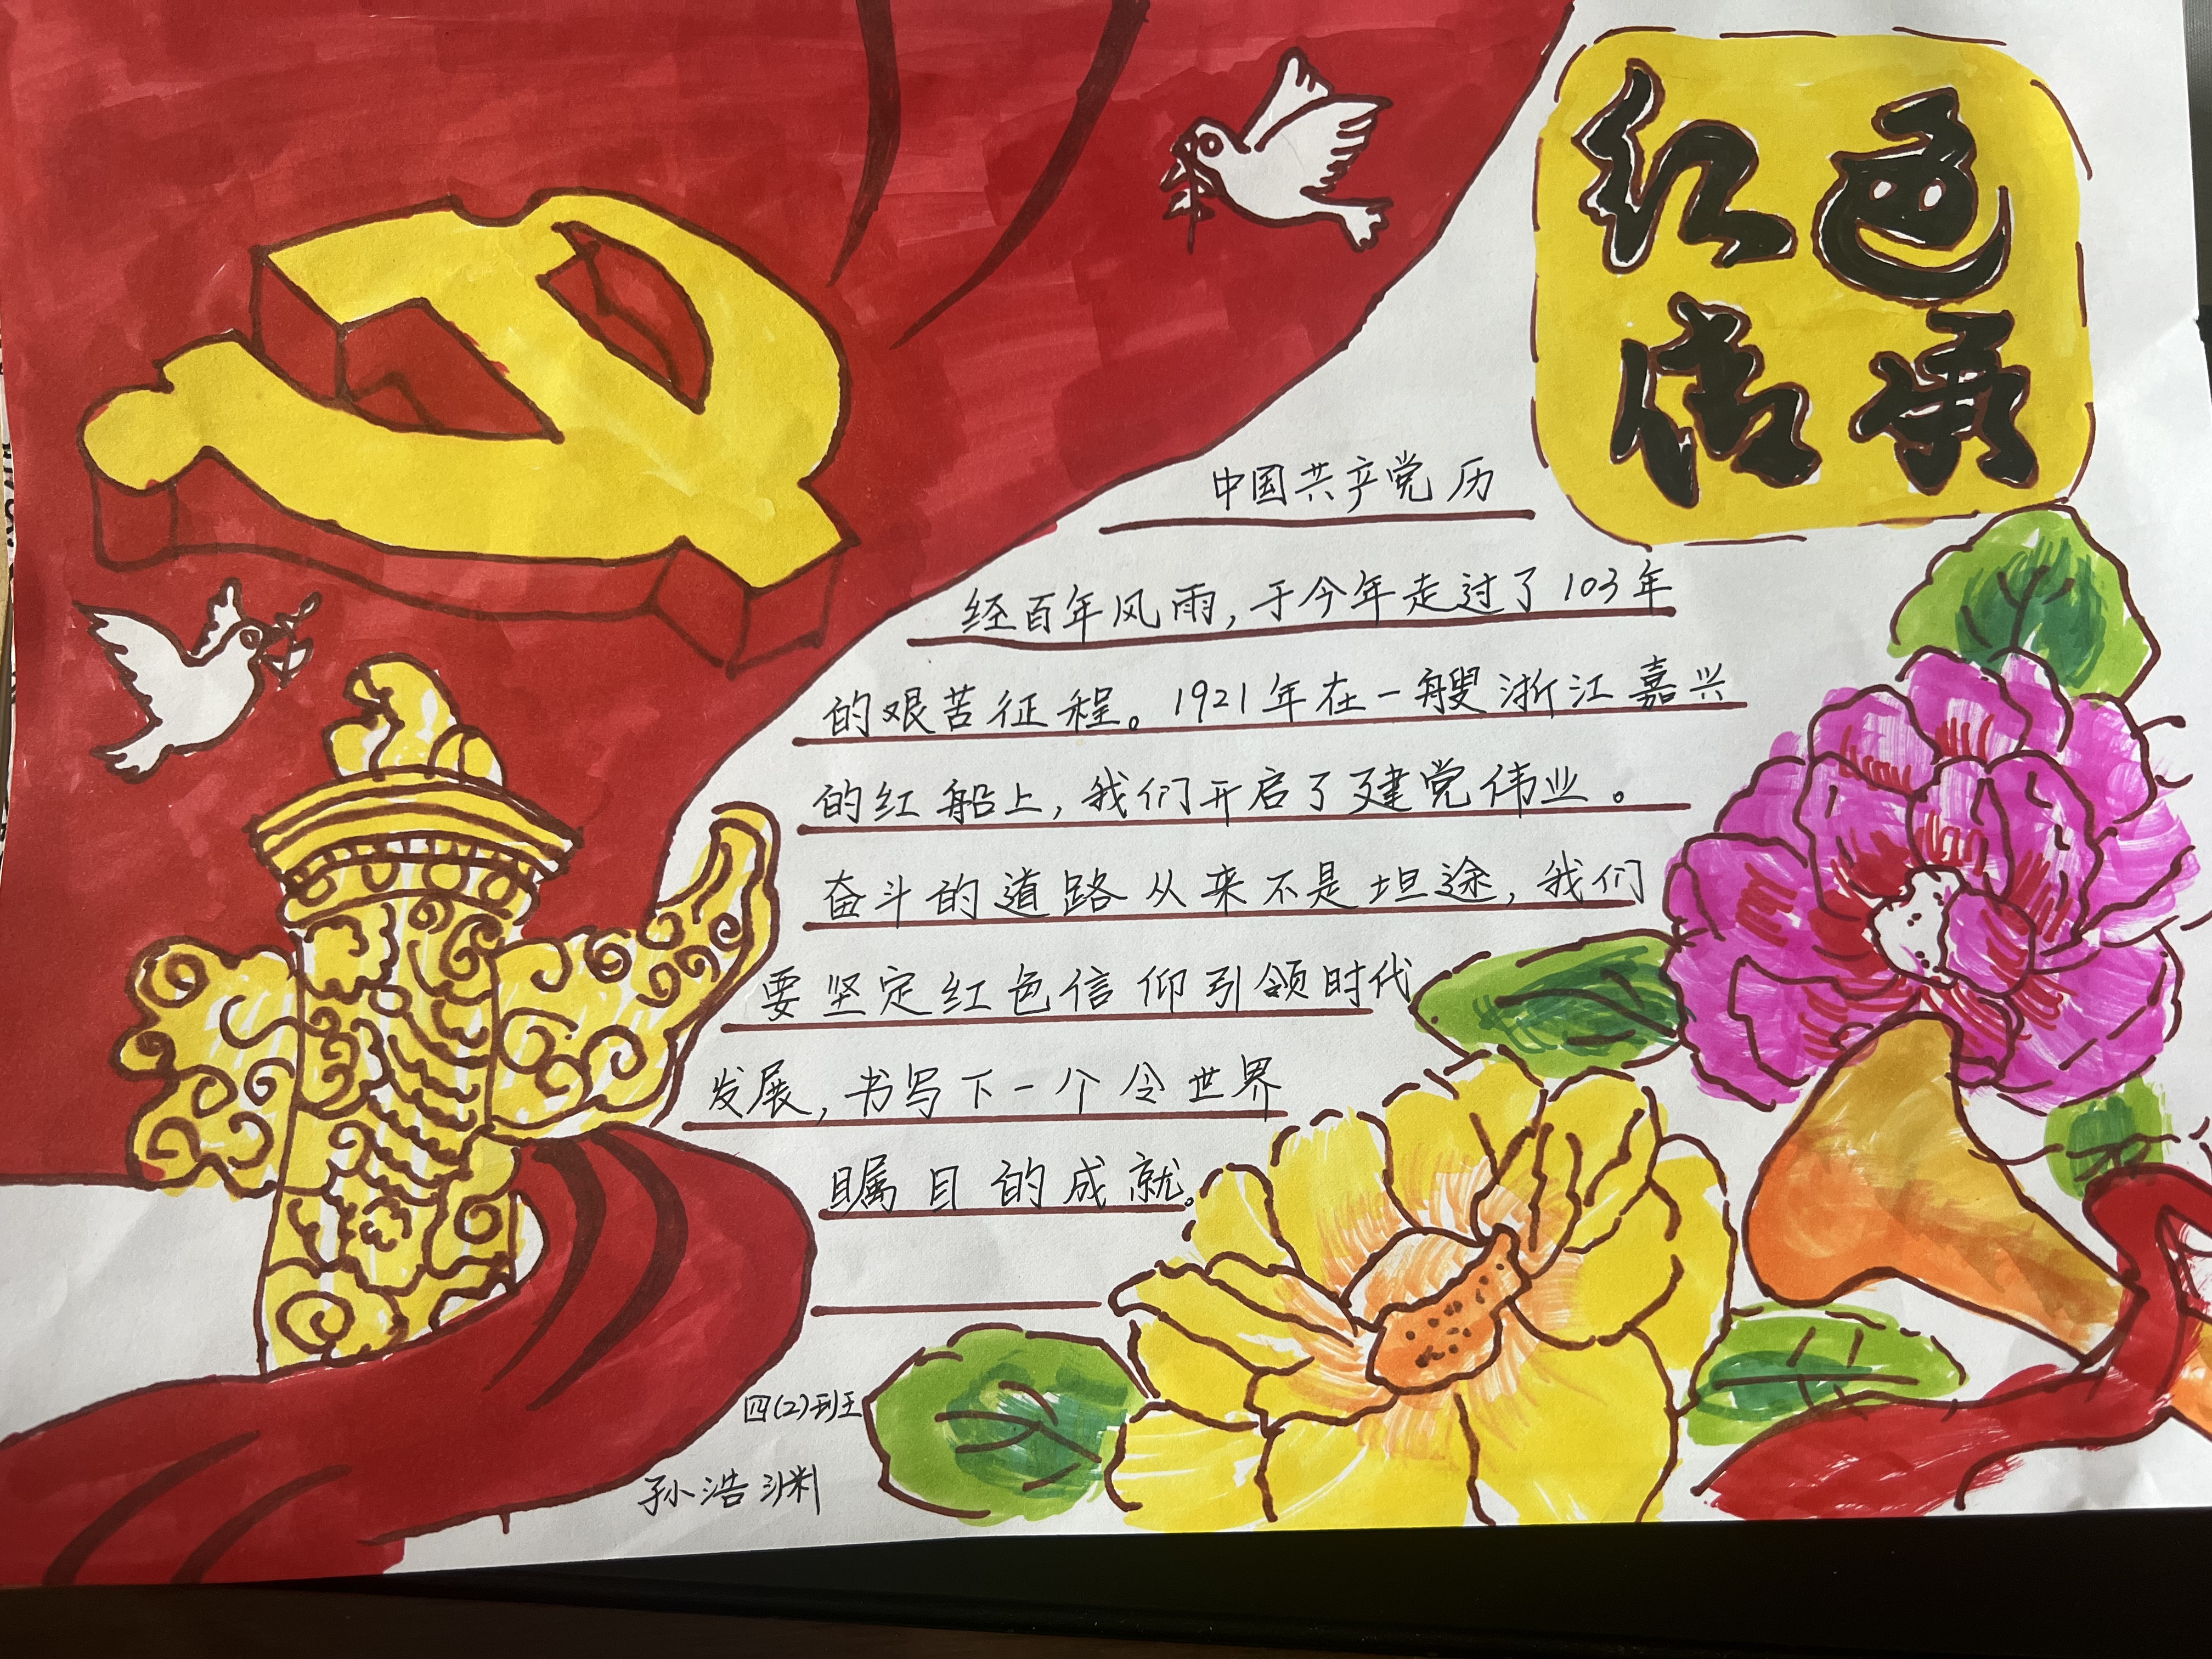 红色
传承
中国共产党历
经百年风雨,于今年走过了103年
的艰苦征程。1921年在一艘浙江嘉兴
的红船上,我们开启了建党伟业。
奋斗的道路从来不是坦途,我们
要坚定红色信仰引领时代
发展,书写下一个令世界
瞩目的成就。
四(2)班
孙浩渊